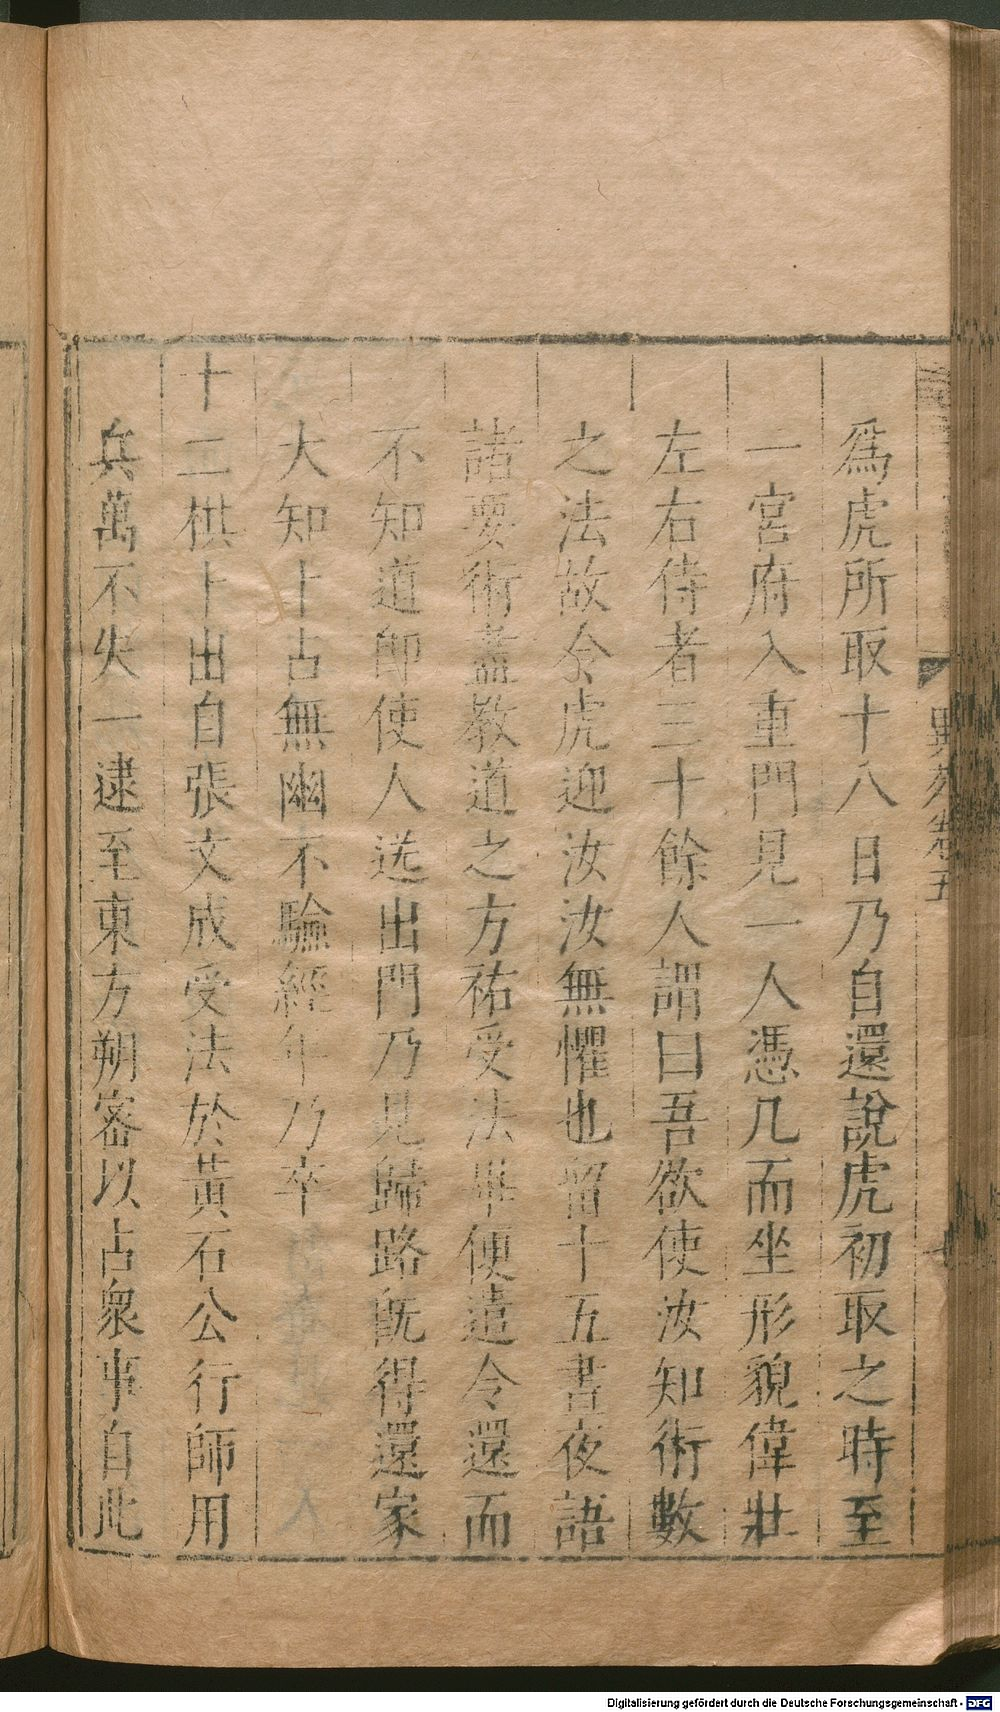 爲虎所取十八日乃自還說虎初取之時至
一宮府入重門見一人憑几而坐形貌偉壯
左右侍者三十餘人謂曰吾欲使汝知術數
之法故令虎迎汝汝無懼也留十五晝夜語
諸要術盡教道之方祐受法畢便遣令還而
不知道卽使人送出門乃見歸路旣得還家
大知卜占無幽不驗經年乃卒
十二棋卜出自張文成受法於黃石公行師用
兵萬不失一逮至東方朔密以占衆事自此
異苑卷五
Digitalisierung gefördert durch die Deutsche Forschungsgemeinschaft - DFG